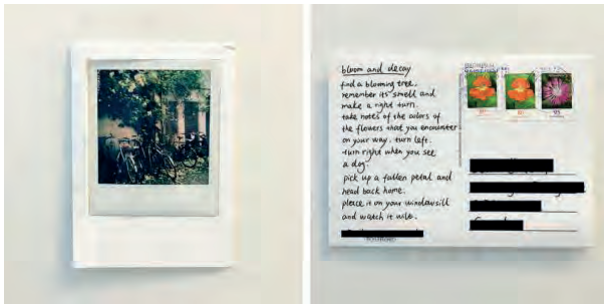 bloom and decay
find a blooming tree.
remember its smell and
make a right turn.
take notes of the colors of
the flowers that you encounter
on your way. turn left.
turn right when you see
a dog.
pick up a fallen petal and
head back home.
place it on your windowsill
and watch it wilt.